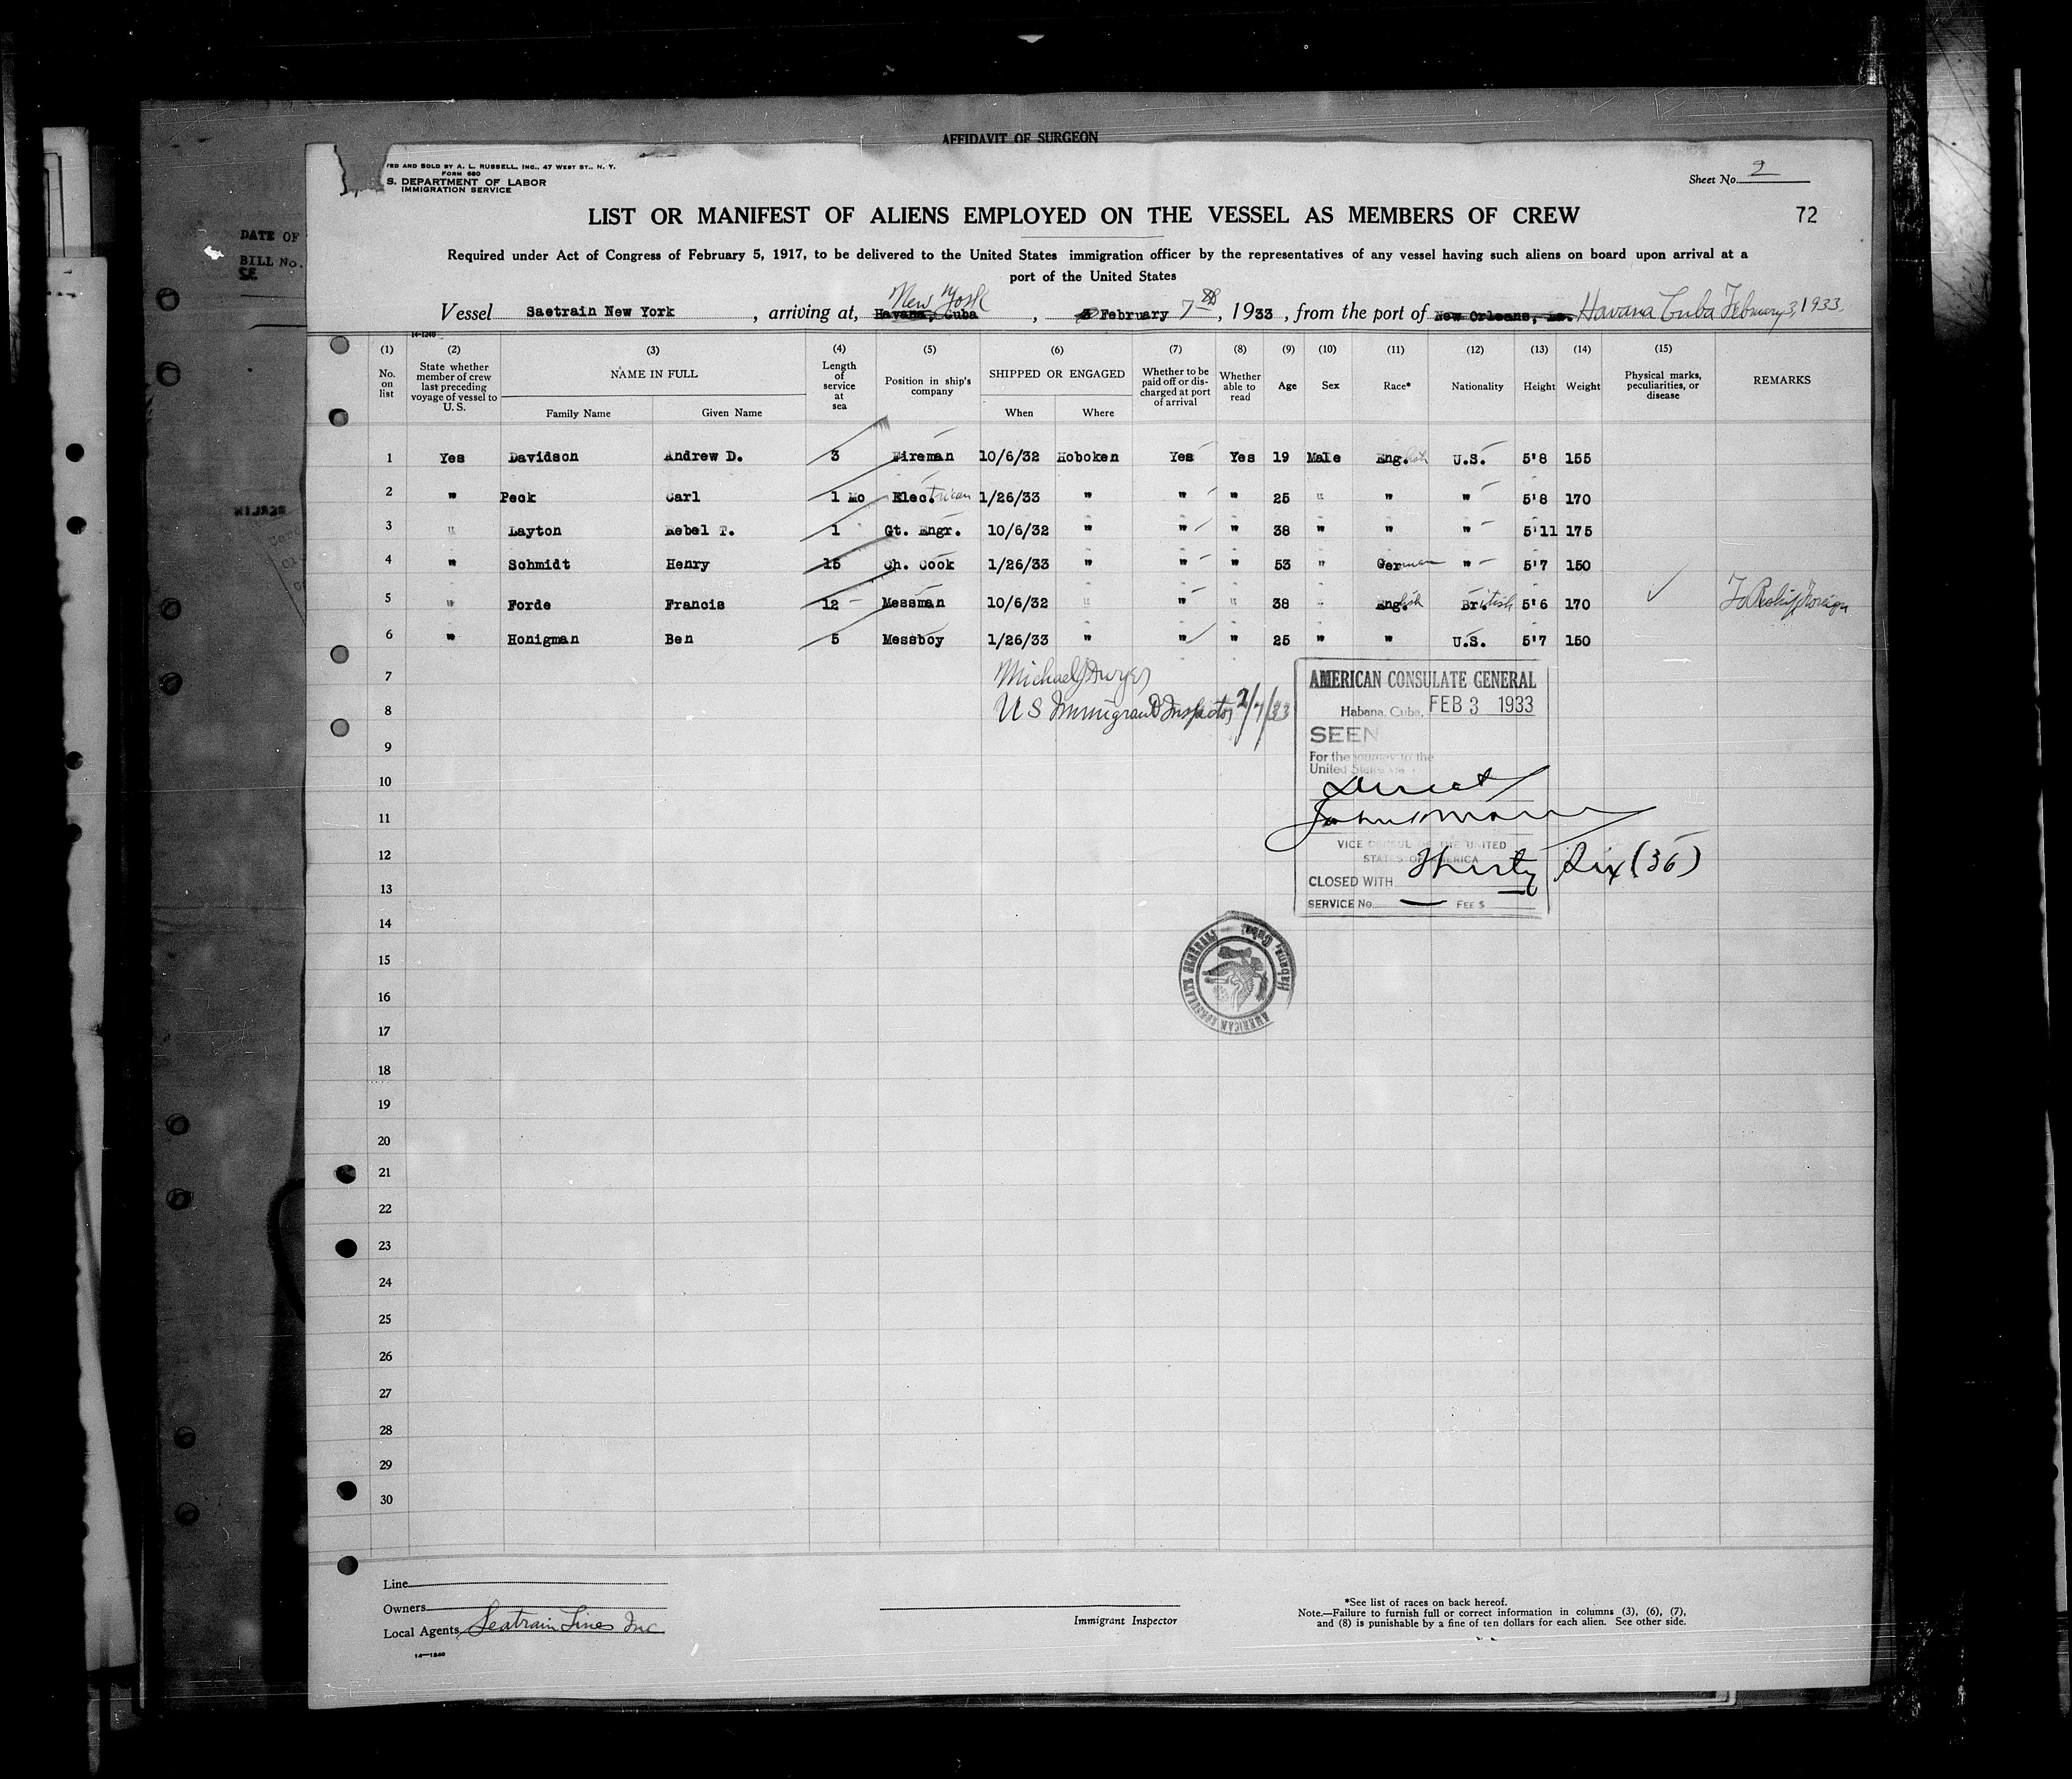 AFFIDAVIT OF SURGEON
DATE OF
BILL No.
TED AND SOLD BY A. L. RUSSELL, INC., 47 WEST ST., N. Y.
FORM 680
S. DEPARTMENT OF LABOR
IMMIGRATION SERVICE
Sheet No. 2
LIST OR MANIFEST OF ALIENS EMPLOYED ON THE VESSEL AS MEMBERS OF CREW
72
Required under Act of Congress of February 5, 1917, to be delivered to the United States immigration officer by the representatives of any vessel having such aliens on board upon arrival at a
port of the United States
New York
Vessel Saetrain New York , arriving at, Havana, Cuba , 3 February 7th , 1933 , from the port of New Orleans, La. Havana Cuba February 3, 1933.
14-1240
(1) (2) (3) (4) (5) (6) (7) (8) (9) (10) (11) (12) (13) (14) (15)
No. on list
State whether member of crew last preceding voyage of vessel to U. S.
NAME IN FULL
Family Name Given Name
Length of service at sea
Position in ship's company
SHIPPED OR ENGAGED
When Where
Whether to be paid off or discharged at port of arrival
Whether able to read
Age Sex Race* Nationality Height Weight
Physical marks, peculiarities, or disease
REMARKS
1 Yes Davidson Andrew D. 3 Fireman 10/6/32 Hoboken Yes Yes 19 Male English U.S. 5'8 155
2 " Peck Carl 1 Mo Elec.trican 1/26/33 " " " 25 " " " 5'8 170
3 " Layton Rebel T. 1 Gt. Engr. 10/6/32 " " " 38 " " " 5'11 175
4 " Schmidt Henry 15 Ch. Cook 1/26/33 " " " 53 " German " 5'7 150
5 " Forde Francis 12 Messman 10/6/32 " " " 38 " English British 5'6 170 ✓ To Reship Foreign
6 " Honigman Ben 5 Messboy 1/26/33 " " " 25 " " U.S. 5'7 150
7
8
9
10
11
12
13
14
15
16
17
18
19
20
21
22
23
24
25
26
27
28
29
30
Michael J Dwyer
U S Immigrant Inspector 2/7/33
AMERICAN CONSULATE GENERAL
Habana, Cuba, FEB 3 1933
SEEN
For the journey to the
United States via
Direct
VICE CONSUL OF THE UNITED
STATES OF AMERICA
CLOSED WITH Thirty Six (36)
SERVICE No. — FEE $
AMERICAN CONSULATE GENERAL Habana, Cuba.
Line
Owners
Local Agents Seatrain Lines Inc
14—1240
Immigrant Inspector
*See list of races on back hereof.
Note.—Failure to furnish full or correct information in columns (3), (6), (7),
and (8) is punishable by a fine of ten dollars for each alien. See other side.